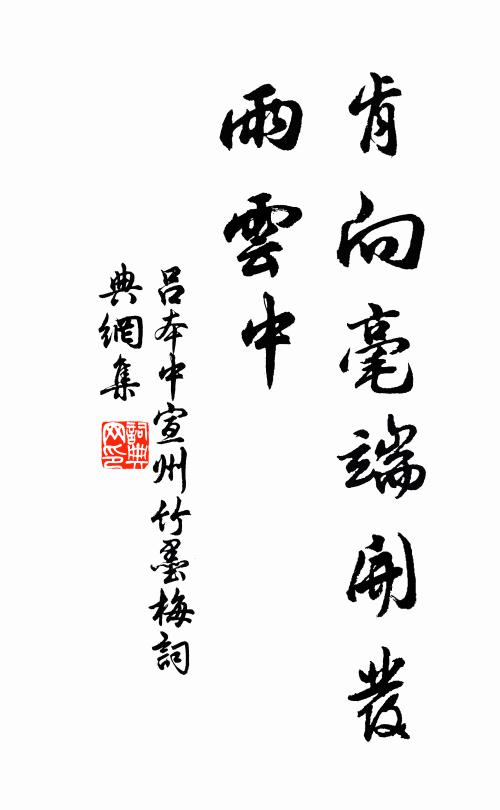 肯向毫端開發
雨雲中
呂本中宣州竹墨梅詞
典網集
詞典
网印